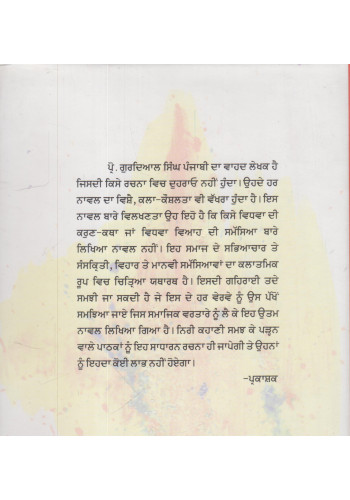 ਪ੍ਰੋ. ਗੁਰਦਿਆਲ ਸਿੰਘ ਪੰਜਾਬੀ ਦਾ ਵਾਹਦ ਲੇਖਕ ਹੈ
ਜਿਸਦੀ ਕਿਸੇ ਰਚਨਾ ਵਿਚ ਦੁਹਰਾਓ ਨਹੀਂ ਹੁੰਦਾ। ਉਹਦੇ ਹਰ
ਨਾਵਲ ਦਾ ਵਿਸ਼ੈ, ਕਲਾ-ਕੌਸ਼ਲਤਾ ਵੀ ਵੱਖਰਾ ਹੁੰਦਾ ਹੈ। ਇਸ
ਨਾਵਲ ਬਾਰੇ ਵਿਲਖਣਤਾ ਉਹ ਇਹੋ ਹੈ ਕਿ ਕਿਸੇ ਵਿਧਵਾ ਦੀ
ਕਰੁਣ-ਕਥਾ ਜਾਂ ਵਿਧਵਾ ਵਿਆਹ ਦੀ ਸਮੱਸਿਆ ਬਾਰੇ
ਲਿਖਿਆ ਨਾਵਲ ਨਹੀਂ। ਇਹ ਸਮਾਜ ਦੇ ਸਭਿਆਚਾਰ ਤੇ
ਸੰਸਕ੍ਰਿਤੀ, ਵਿਹਾਰ ਤੇ ਮਾਨਵੀ ਸਮੱਸਿਆਵਾਂ ਦਾ ਕਲਾਤਮਿਕ
ਰੂਪ ਵਿਚ ਚਿਤ੍ਰਿਆ ਯਥਾਰਥ ਹੈ। ਇਸਦੀ ਗਹਿਰਾਈ ਤਦੇ
ਸਮਝੀ ਜਾ ਸਕਦੀ ਹੈ ਜੇ ਇਸ ਦੇ ਹਰ ਵੇਰਵੇ ਨੂੰ ਉਸ ਪੱਖੋਂ
ਸਮਝਿਆ ਜਾਏ ਜਿਸ ਸਮਾਜਿਕ ਵਰਤਾਰੇ ਨੂੰ ਲੈ ਕੇ ਇਹ ਉਤਮ
ਨਾਵਲ ਲਿਖਿਆ ਗਿਆ ਹੈ। ਨਿਰੀ ਕਹਾਣੀ ਸਮਝ ਕੇ ਪੜ੍ਹਨ
ਵਾਲੇ ਪਾਠਕਾਂ ਨੂੰ ਇਹ ਸਾਧਾਰਨ ਰਚਨਾ ਹੀ ਜਾਪੇਗੀ ਤੇ ਉਹਨਾਂ
ਨੂੰ ਇਹਦਾ ਕੋਈ ਲਾਭ ਨਹੀਂ ਹੋਏਗਾ।
-ਪ੍ਰਕਾਸ਼ਕ